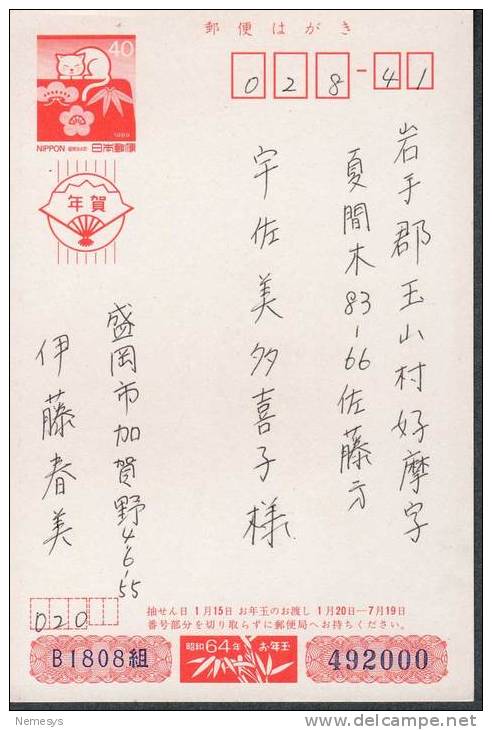 郵便はがき
40
1989
NIPPON 昭和64年 日本郵便
年賀
028-41
岩手郡玉山村好摩字
夏間木83-66佐藤方
宇佐美多喜子様
盛岡市加賀野4-6-55
伊藤春美
020
抽せん日 1月15日 お年玉のお渡し 1月20日―7月19日
番号部分を切り取らずに郵便局へお持ちください。
B1808組
昭和64年 お年玉
492000
Nemesys
www.delcampe.net